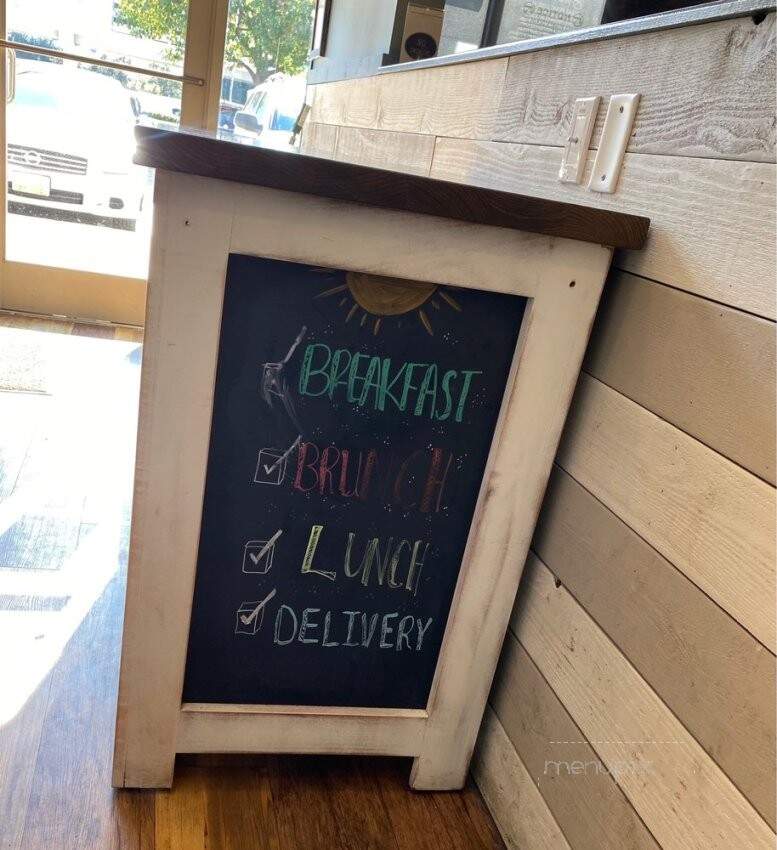 BREAKFAST
BRUNCH
LUNCH
DELIVERY